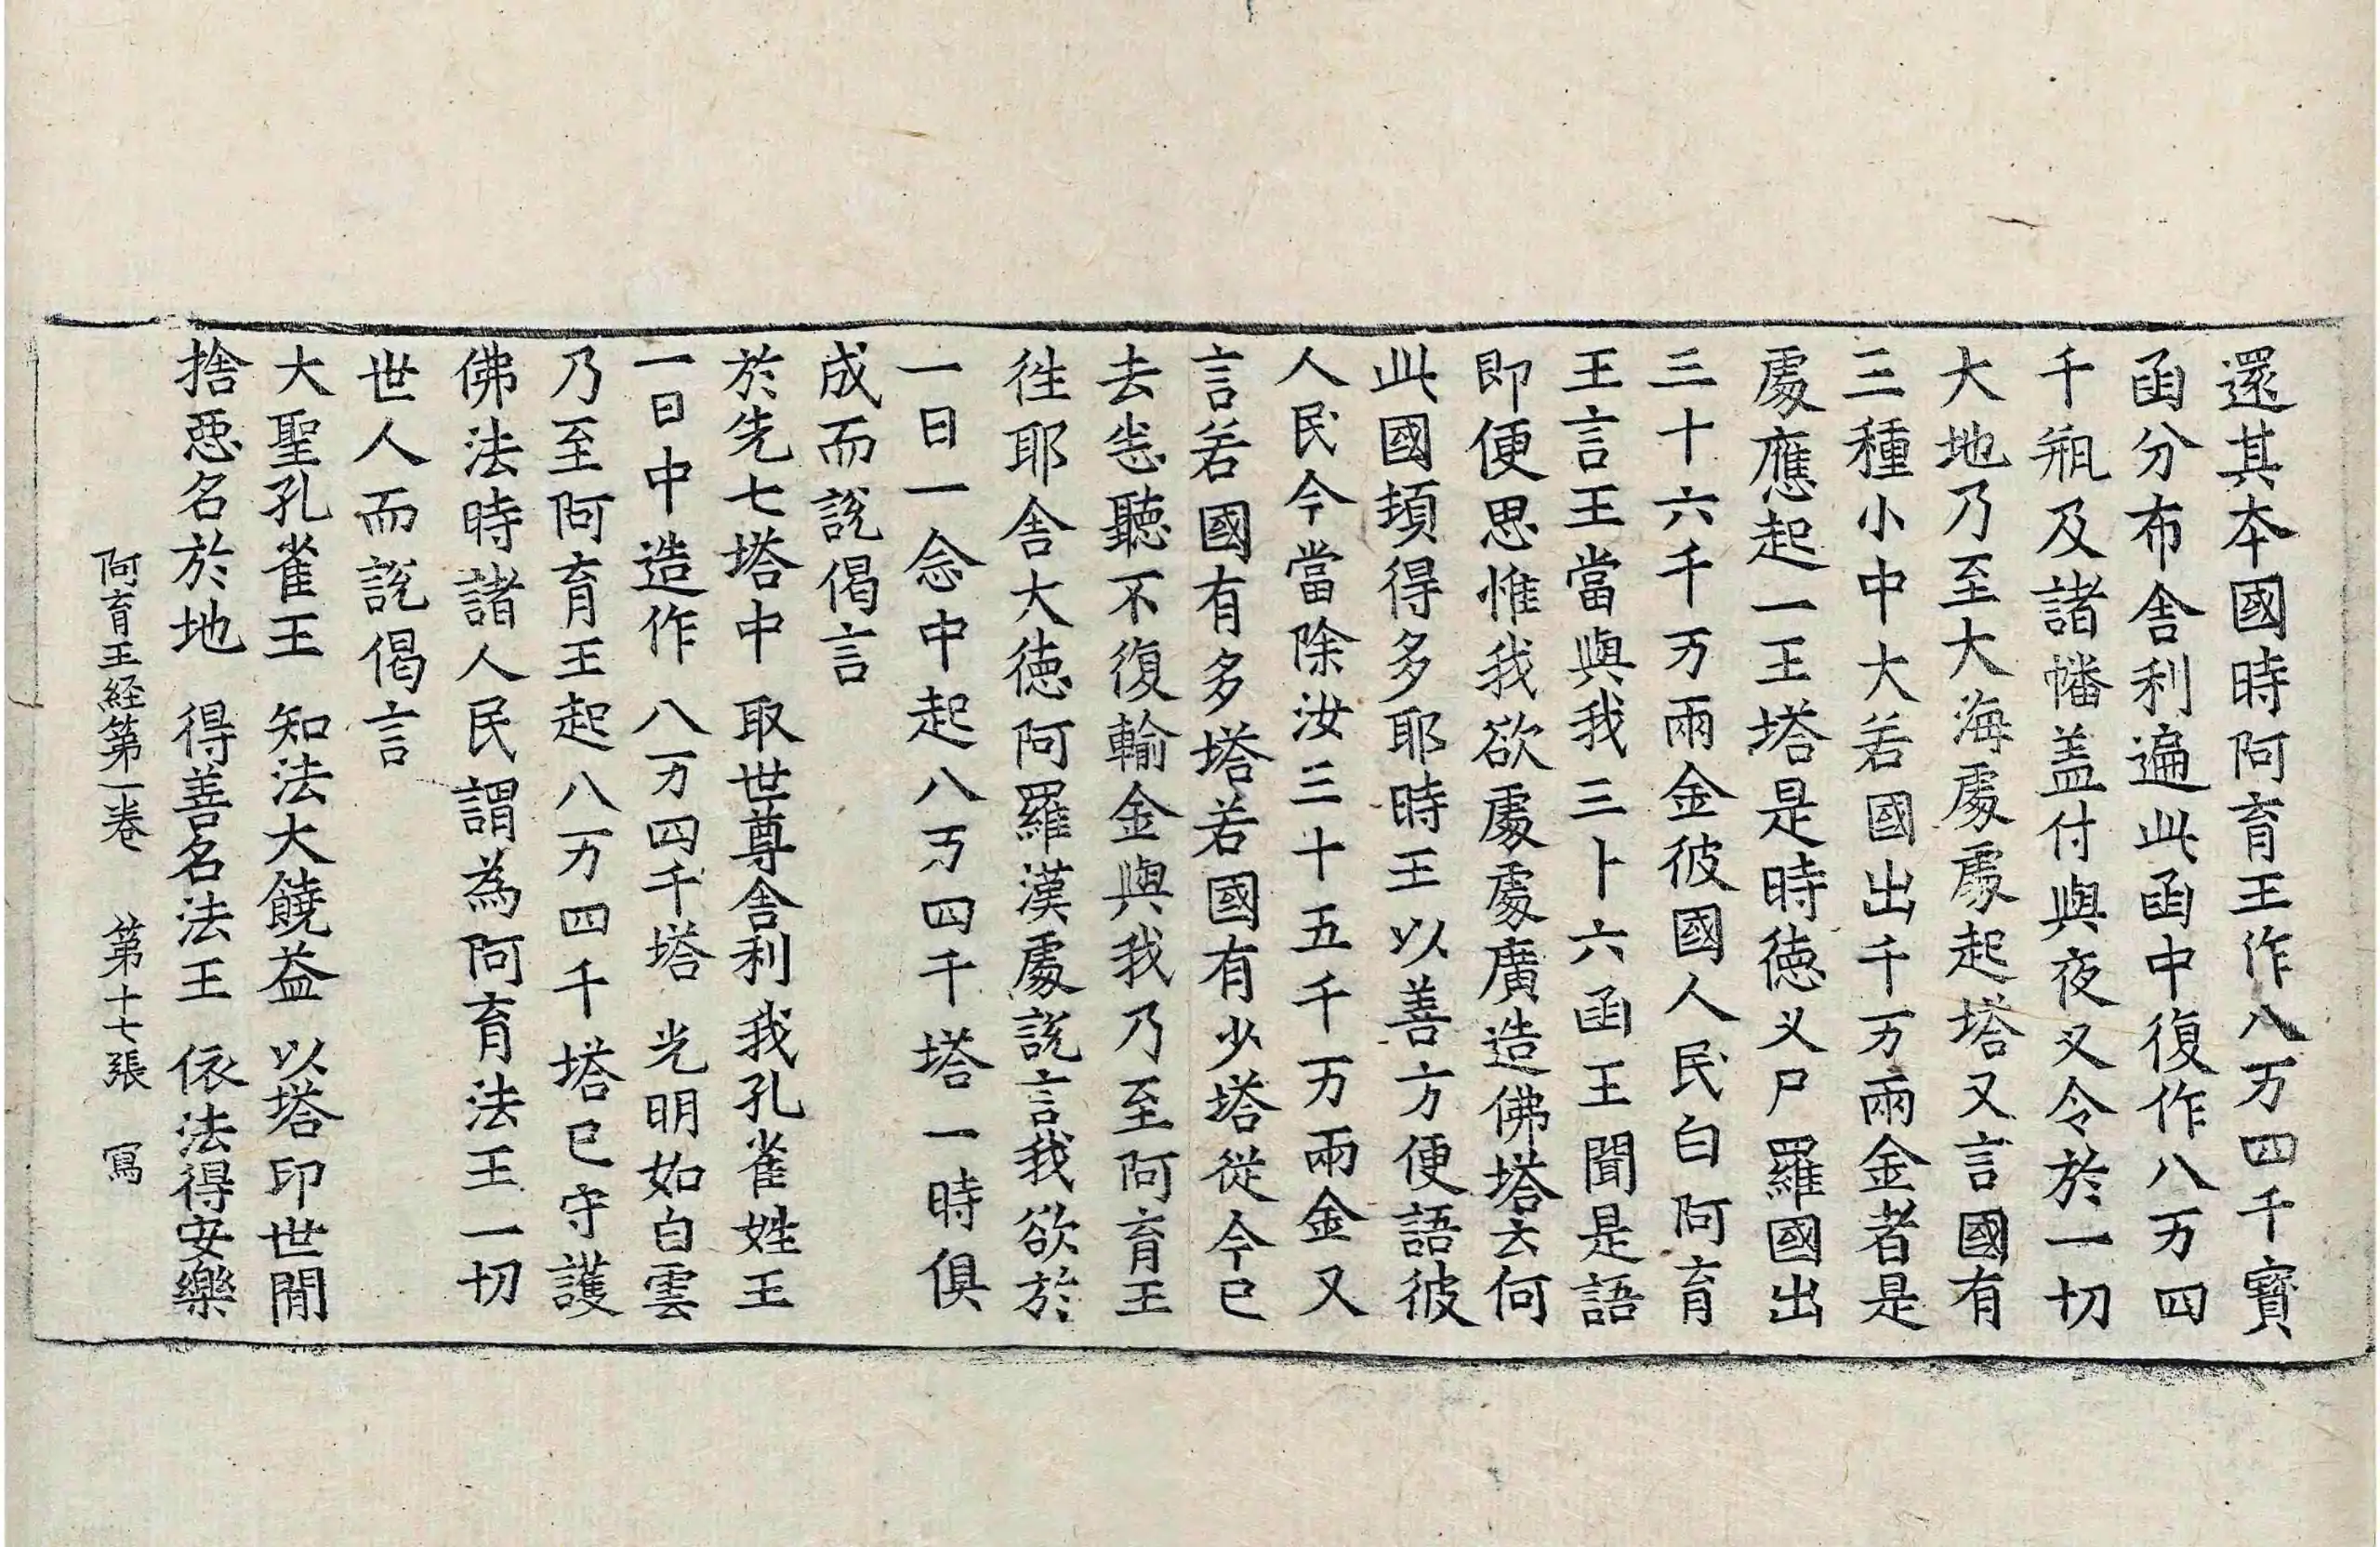 還其本國時阿育王作八万四千寶
函分布舍利遍此函中復作八万四
千瓶及諸幡盖付與夜叉令於一切
大地乃至大海處處起塔又言國有
三種小中大若國出千万兩金者是
處應起一王塔是時徳叉尸羅國出
三十六千万兩金彼國人民白阿育
王言王當與我三十六函王聞是語
即便思惟我欲處處廣造佛塔云何
此國頊得多耶時王以善方便語彼
人民今當除汝三十五千万兩金又
言若國有多塔若國有少塔從今已
去恣聽不復輸金與我乃至阿育王
徃耶舍大徳阿羅漢處説言我欲於
一日一念中起八万四千塔一時俱
成而説偈言
於先七塔中　取世尊舍利　我孔雀姓王
一日中造作　八万四千塔　光明如白雲
乃至阿育王起八万四千塔已守護
佛法時諸人民謂為阿育法王一切
世人而説偈言
大聖孔雀王　知法大饒益　以塔印世閒
捨惡名於地　得善名法王　依法得安樂
阿育王経第一卷　第十七張　寫